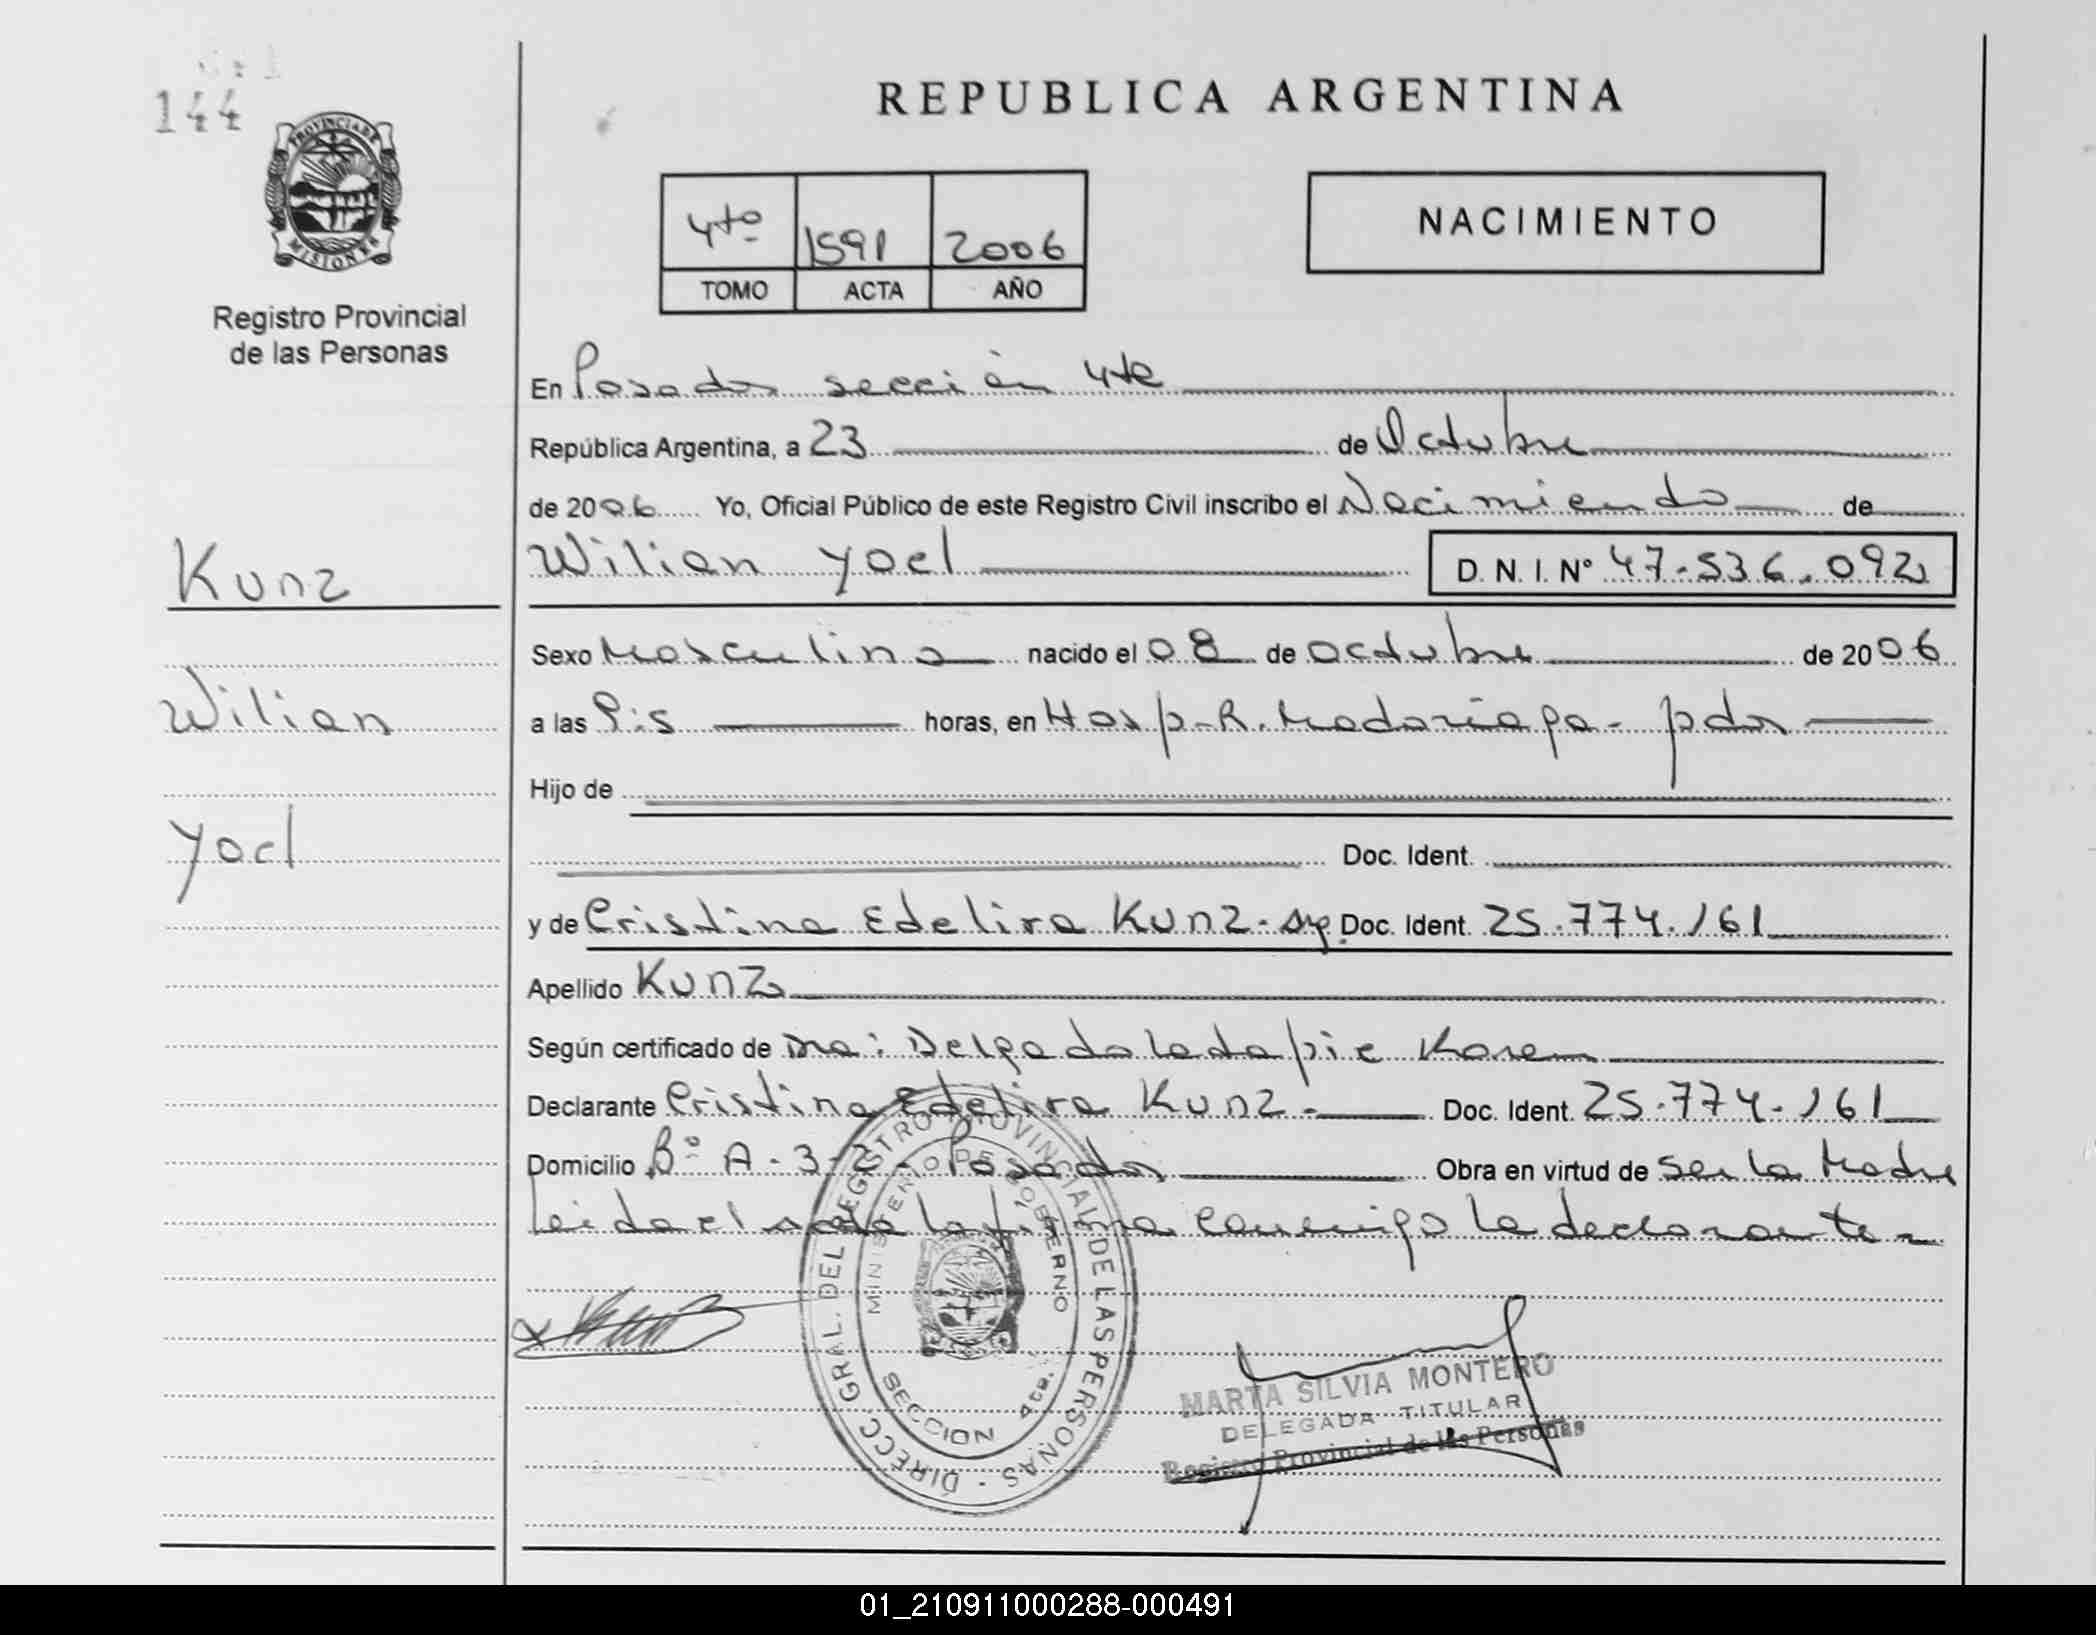 144
PROVINCIA DE
MISIONES
Registro Provincial
de las Personas
REPUBLICA ARGENTINA
4to 1591 2006
TOMO ACTA AÑO
NACIMIENTO
En Posadas sección 4te
República Argentina, a 23 de Octubre
de 2006 Yo, Oficial Público de este Registro Civil inscribo el Nacimiento de
Kunz
Wilian Yoel D.N.I. Nº 47.536.092
Sexo Masculino nacido el 08 de Octubre de 2006
Wilian
a las horas, en Hosp. R. Madariaga - pdas
Hijo de
Yoel
Doc. Ident.
y de Cristina Edelira Kunz - Arg. Doc. Ident. 25.774.161
Apellido Kunz
Según certificado de Dra: Delgado Ladapie Karen
Declarante Cristina Edelira Kunz - Doc. Ident. 25.774.161
Domicilio Bº A-3-2 - Posadas Obra en virtud de ser la Madre
Leida el acta la firma conmigo la declarante -
DIRECC. GRAL. DEL REGISTRO PROVINCIAL DE LAS PERSONAS
MINISTERIO DE GOBIERNO
SECCION 4ta.
MARTA SILVIA MONTERO
DELEGADA TITULAR
Registro Provincial de las Personas
01_210911000288-000491